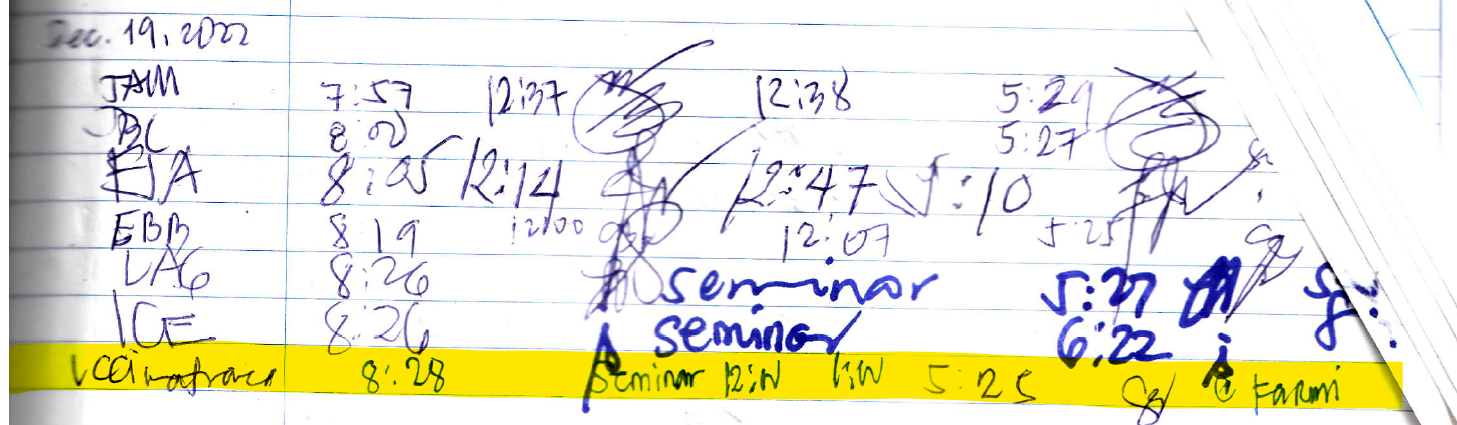 Dec. 19, 2022
JAM 7:57 12:37 12:38 5:29
JBC 8:00 5:27
EJA 8:05 12:14 12:47 5:10
EBB 8:19 12:00 12:07 5:25
LAG 8:26 seminar 5:27
ICE 8:26 seminar 6:22
8:28 Seminar 5:25